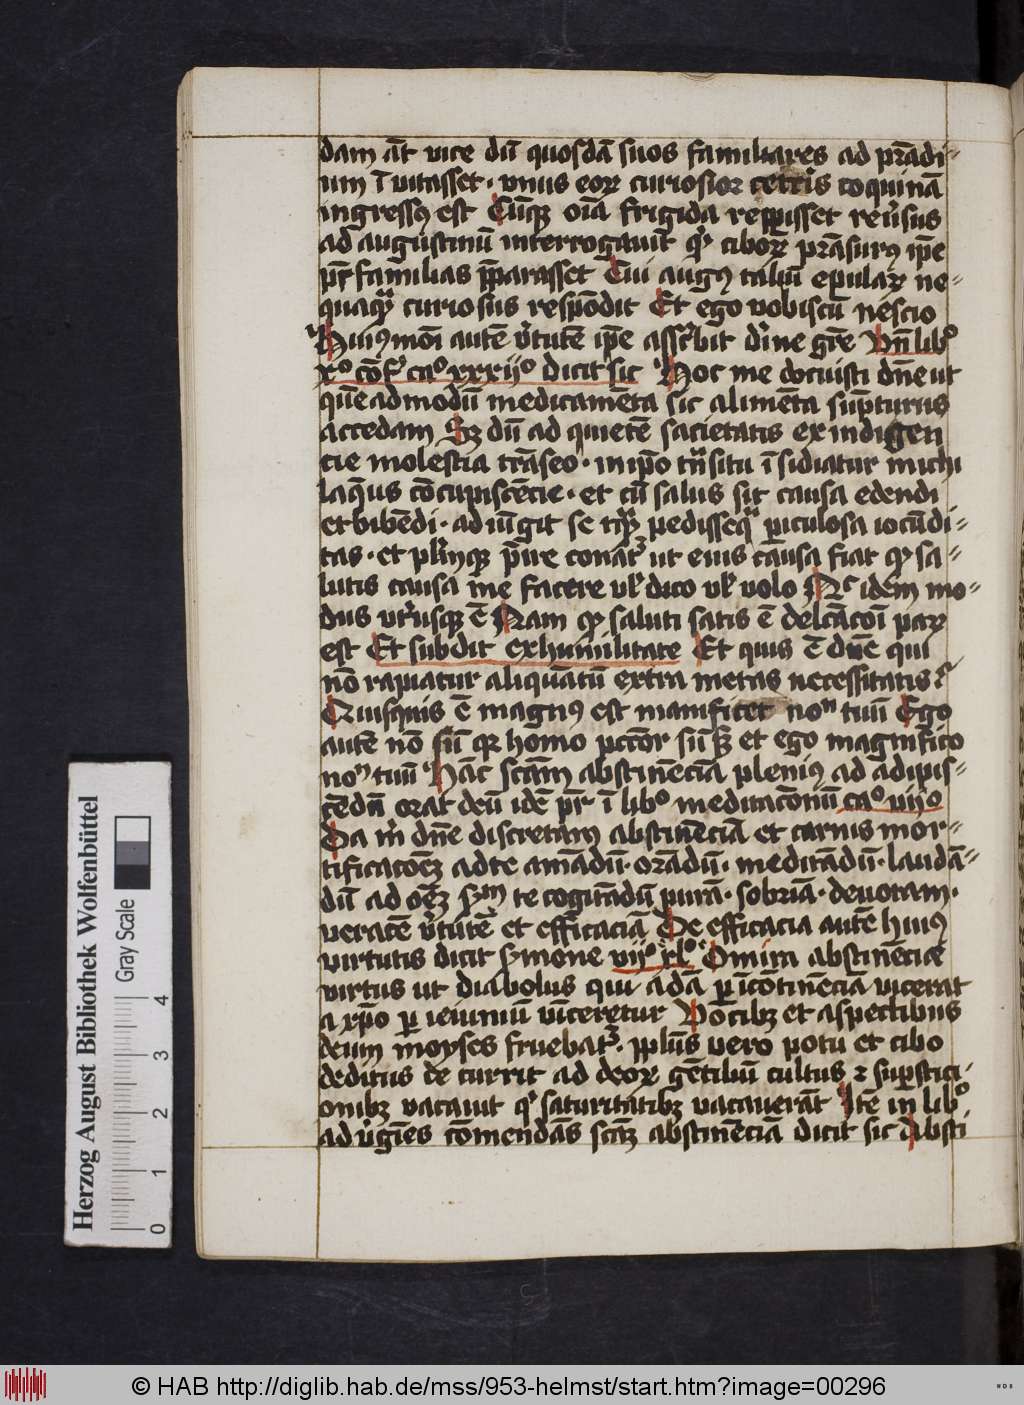 dam at̄ vice dū quosdā suos familiares ad prādi⸗
um ī vitasset · vnus eoꝝ curiosior cetc̄is coquinā
ingressꝰ est Cūqꝫ oīa frigida reꝑisset reu̾sus
ad augustinū interrogauit qͥ ciboꝝ prāsurꝰ ip̄e
pr̄ familias p̄parasset Cui augꝰ taliū epulaꝝ ne⸗
quaqͣ curiosus respōdit Et ego vobiscū nescio
Huiꝰmōi autē v̾tutē ip̄e ascͥbit dīne gr̄e Vn̄ libº
xº cōf̄ caº xxxijº dicit sic Hoc me docuisti dn̄e ut
quēadmodū medicamēta sic alimēta sūpturus
accedam Sꝫ dū ad quietē sacietatis ex indigen
cie molestia trāseo · in ip̄o tn̄situ īsidiatur michi
laqueus cōcupiscēcie · et cū salus sit causa edendi
et bibēdi · ad iūgit se tqͣꝫ pedissequa ꝑiculosa iocūdi⸗
tas · et plͥm̄qꝫ p̄ire conatᷣ ut eius causa fiat qͩ sa⸗
lutis causa me facere vl̓ dico vl̓ volo Nᶜ idem mo⸗
dus vtͥusqꝫ ē Nam qͩ saluti satis ē delcācōi paꝝ
est Et subdit ex humilitate Et quis ē dn̄e qui
nō rapiatur aliquātū extra metas necessitatis?
Quisquis ē magnꝰ est manificet noᵐ tuū Ego
autē nō sū qꝛ homo pccōr sū Sꝫ et ego magnifico
noᵐ tuū Hāc scām abstinēciā pleniꝰ ad adipis⸗
cēdā orat deū idē pr̄ ī libº meditacōnū caº vijº
Da mͥ dn̄e discretam abstinēciā et carnis mor⸗
tificacōeꝫ ad te amādū · orādū · meditādū · laudā⸗
dū ad oēꝫ sᵐ te cogitādū purā · sobriā · deuotam ·
veracē v̾tutē et efficaciā De efficacia autē huiꝰ
virtutis dicit symone vijº xlº Omira abstinēcie
virtus ut diabolus qui adā ꝑ īcōtinēciā vicerat
a xp̄o ꝑ ieiuniū vīceretur Vocibꝫ et aspectibus
deum moyses fruebatᷣ · pplūs vero potu et cibo
deditus de currit ad deoꝝ gētiliū cultus ⁊ suꝑstici⸗
onibꝫ vacauit qͥ saturitatibꝫ vacauerāt Itē in libº
ad v̾gīes cōmendās scāꝫ abstinēciā dicit sic Absti
Herzog August Bibliothek Wolfenbüttel
Gray Scale
0 1 2 3 4
© HAB http://diglib.hab.de/mss/953-helmst/start.htm?image=00296